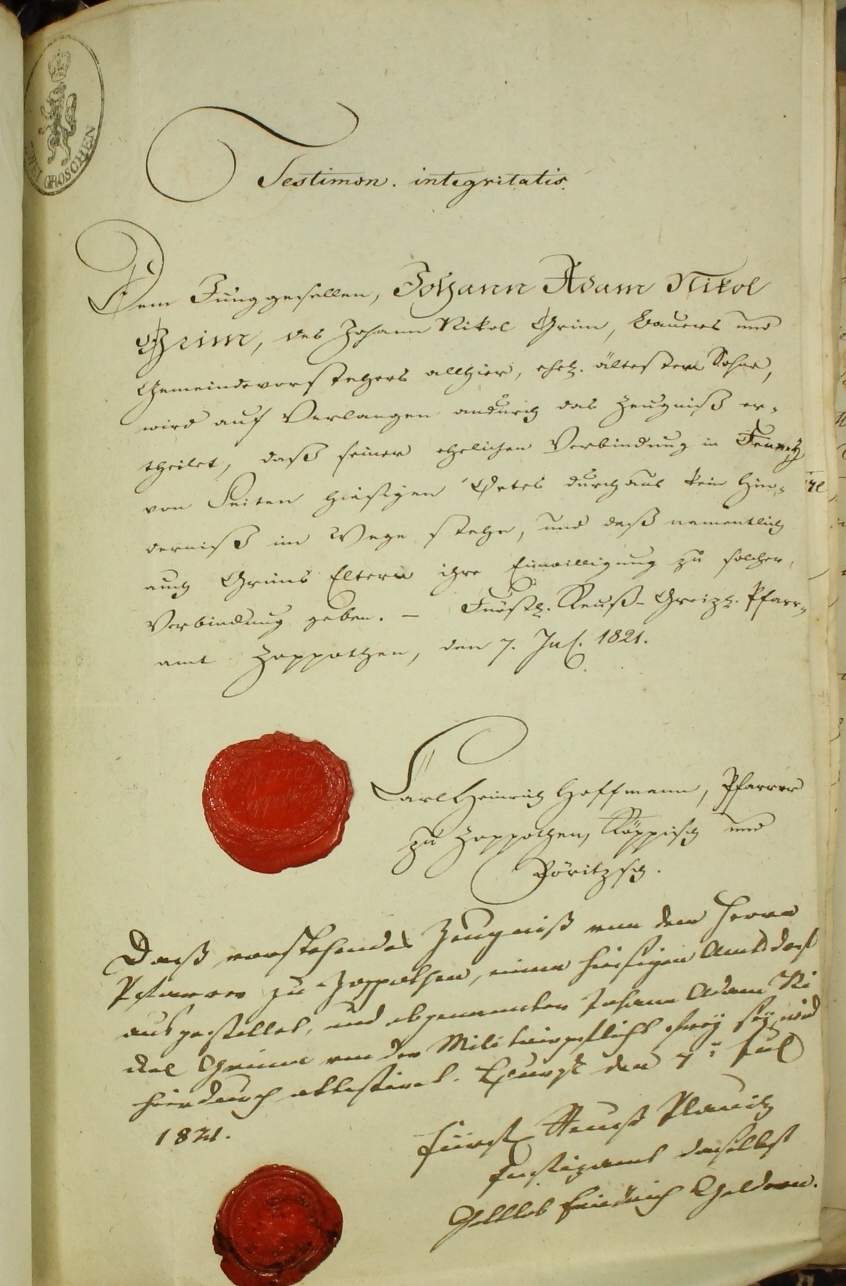 ZWEI GROSCHEN
Testimon. integritatis.
Dem Junggesellen, Johann Adam Nikol
Grim, des Johann Nikol Grim, Bauers und
Gemeindevorstehers allhier, ehel. ältestem Sohne,
wird auf Verlangen andurch das Zeugniß er-
theilet, daß seiner ehelichen Verbindung in
von Seiten hiesigen Ortes durchaus kein Hin-
derniß im Wege stehe, und daß namentlich
auch Grims Eltern ihre Einwilligung zu solcher
Verbindung geben. – Fürstl. Reuß-Greizl. Pfarr-
amt Zoppothen, den 7. Jul. 1821.
Carl Heinrich Hoffmann, Pfarrer
zu Zoppothen, Röppisch und
Döritzsch.
Daß vorstehendes Zeugniß von dem Herrn
Pfarrer zu Zoppothen, einem hiesigen Amtsdorf
ausgestellet, und obgenannter Johann Adam Ni
ckel Grimm von der Militairpflicht frey sey, wird
hierdurch attestiret. Burgk den 7. Jul
1821.
Fürstl. Reuß Plauis.
Justizamt daselbst
Gottlob Friedrich